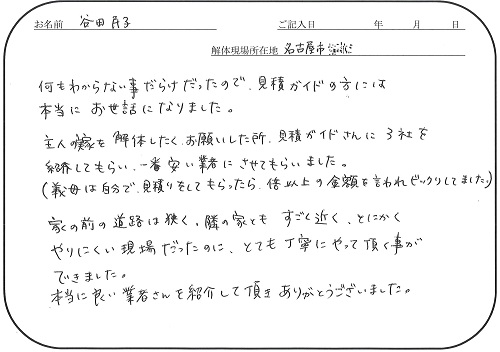 お名前 谷田 ご記入日 年 月 日
解体現場所在地 名古屋市
何もわからない事だらけだったので、見積ガイドの方には
本当に お世話になりました。
主人の家を 解体したく、お願いした所、見積ガイドさんに 3社を
紹介してもらい、一番安い業者に させてもらいました。
(義母は自分で、見積りをしてもらったら、倍以上の金額を言われビックリしてました。)
家の前の道路は狭く、隣の家とも すごく近く、とにかく
やりにくい現場だったのに、とても丁寧にやって頂く事が
できました。
本当に良い業者さんを紹介して頂き ありがとうございました。